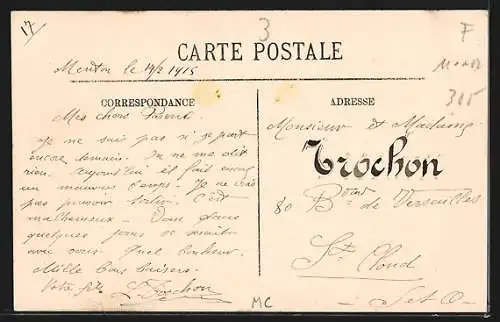 17
3
F
CARTE POSTALE
Menton le 19/2 1915
305
CORRESPONDANCE
ADRESSE
Mes chers Parents.
Je ne sais pas si je part
encore demain. Tu ne me dit
rien. Aujourd'hui il fait encore
un mauvais temps. Je ne crois
pas pouvoir sortir. C'est
malheureux. Donc dans
quelques jours se sentir
avec vous. Quel bonheur.
Mille bons baisers.
Votre fils
L. Trochon
Monsieur et Madame
Trochon
80 Bard de Versailles
St Cloud
S et O
MC